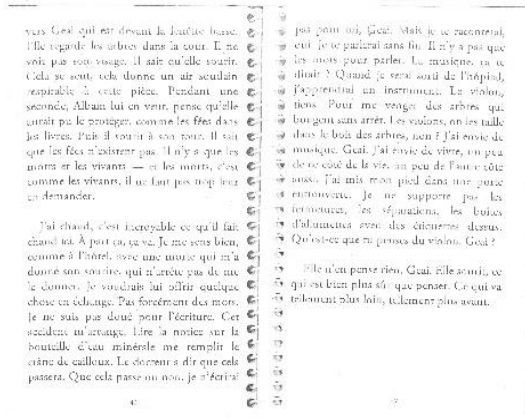 vers Geai qui est devant la fenêtre basse.
Elle regarde les arbres dans la cour. Il ne
voit pas son visage. Il sait qu'elle sourit.
Cela se sent, cela donne un air soudain
respirable à cette pièce. Pendant une
seconde, Albain lui en veut, pense qu'elle
aurait pu le protéger, comme les fées dans
les livres. Puis il sourit à son tour. Il sait
que les fées n'existent pas. Il n'y a que les
morts et les vivants — et les morts, c'est
comme les vivants, il ne faut pas trop leur
en demander.
J'ai chaud, c'est incroyable ce qu'il fait
chaud ici. À part ça, ça va. Je me sens bien,
comme à l'hôtel, avec une morte qui m'a
donné son sourire, qui n'arrête pas de me
le donner. Je voudrais lui offrir quelque
chose en échange. Pas forcément des mots.
Je ne suis pas doué pour l'écriture. Cet
accident m'arrange. Lire la notice sur la
bouteille d'eau minérale me remplit le
crâne de cailloux. Le docteur a dit que cela
passera. Que cela passe ou non, je n'écrirai
pas pour toi, Geai. Mais je te raconterai,
oui. Je te parlerai sans fin. Il n'y a pas que
les mots pour parler. La musique, ça te
dirait ? Quand je serai sorti de l'hôpital,
j'apprendrai un instrument. Le violon,
tiens. Pour me venger des arbres qui
bougent sans arrêt. Les violons, on les taille
dans le bois des arbres, non ? J'ai envie de
musique, Geai. J'ai envie de vivre, un peu
de ce côté de la vie, un peu de l'autre côté
aussi. J'ai mis mon pied dans une porte
entrouverte. Je ne supporte pas les
fermetures, les séparations, les boîtes
d'allumettes avec des étiquettes dessus.
Qu'est-ce que tu penses du violon, Geai ?
Elle n'en pense rien, Geai. Elle sourit, ce
qui est bien plus sûr que penser. Ce qui va
tellement plus loin, tellement plus avant.